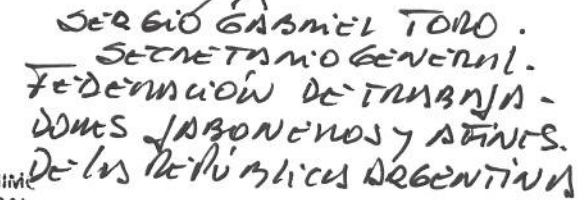 SERGIO GABRIEL TORO.
SECRETARIO GENERAL.
FEDERACIÓN DE TRABAJA-
DORES JABONEROS y AFINES.
DE LA REPÚBLICA ARGENTINA